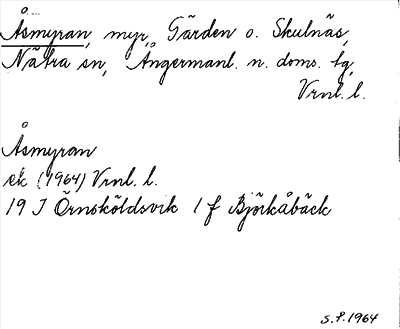 Åsmyran, myr, Gärden o. Skulnäs,
Nätra sn, Ångermanl. n. doms. tg,
Vrnl. l.
Åsmyran
ek (1964) Vrnl. l.
19 J Örnsköldsvik 1 f Björkåbäck
S.F. 1964